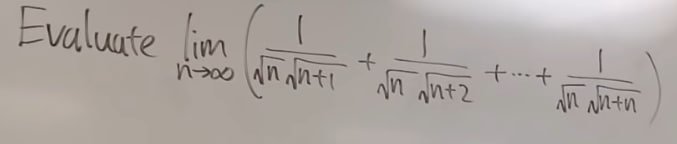 Evaluate lim n→∞ ( 1/(√n √(n+1)) + 1/(√n √(n+2)) + ⋯ + 1/(√n √(n+n)) )